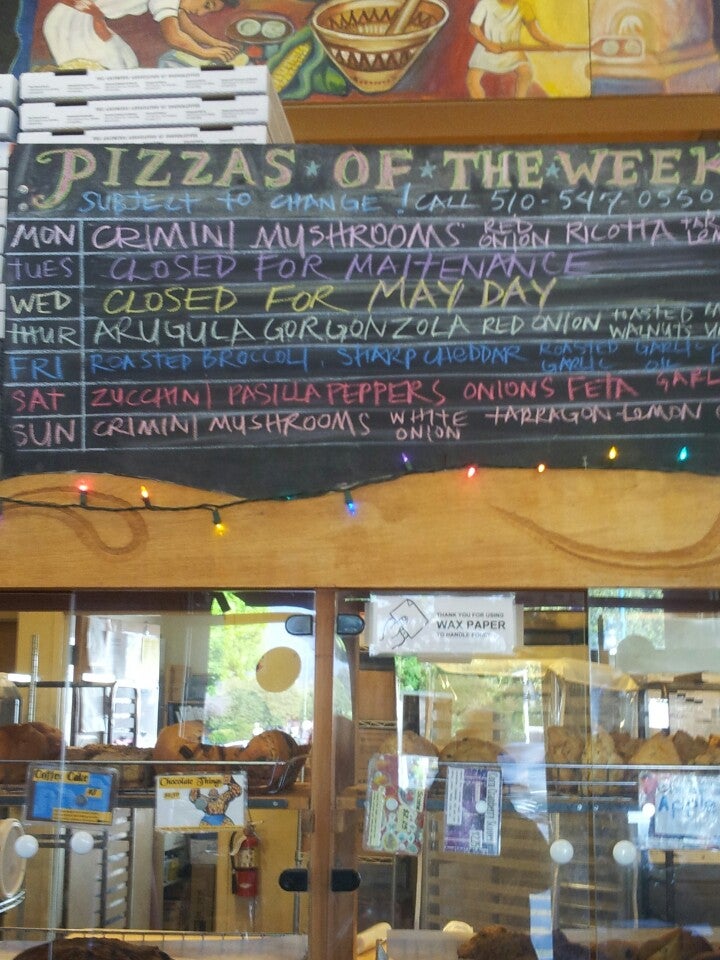 PIZZAS OF THE WEEK
SUBJECT TO CHANGE! CALL 510-547-0550
MON CRIMINI MUSHROOMS RED ONION RICOTTA
TUES CLOSED FOR MAITENANCE
WED CLOSED FOR MAY DAY
THUR ARUGULA GORGONZOLA RED ONION TOASTED WALNUTS
FRI ROASTED BROCCOLI SHARP CHEDDAR ROASTED GARLIC GARLIC OIL
SAT ZUCCHINI PASILLA PEPPERS ONIONS FETA GARL
SUN CRIMINI MUSHROOMS WHITE ONION TARRAGON-LEMON
THANK YOU FOR USING
WAX PAPER
TO HANDLE FOOD
Coffee Cake
Chocolate Things